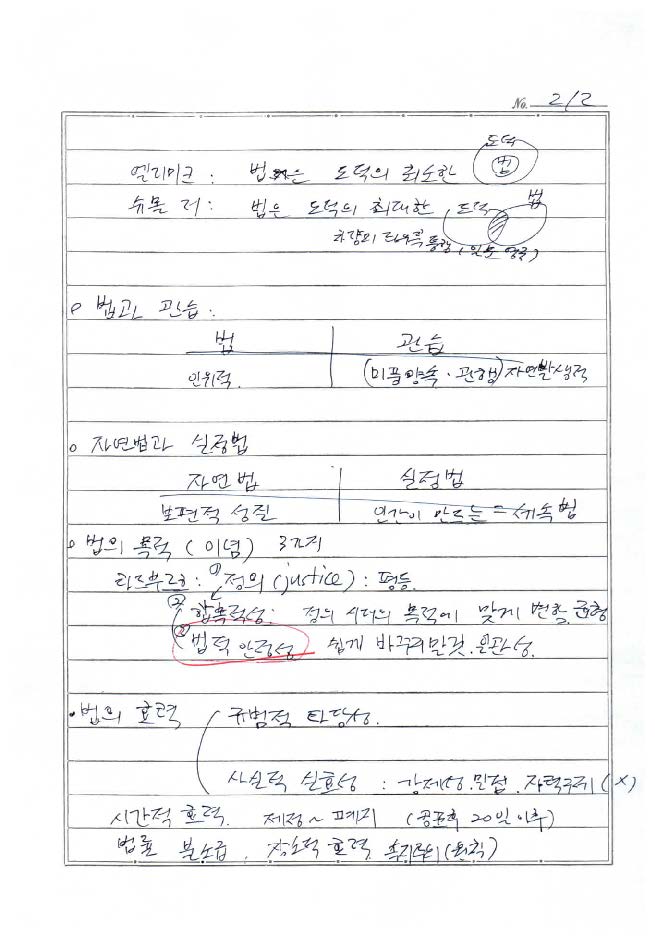 No. 2/2
도덕
옐리미크 : 법은 도덕의 최소한 법
슈몰러 : 법은 도덕의 최대한 도덕 법
o 법과 관습 :
법 관습
인위적. (미풍양속 · 관행) 자연발생적
o 자연법과 실정법
자연법 실정법
보편적 성질 인간이 만드는 = 세속법
o 법의 목적 (이념) 3가지
라드부르흐 : ① 정의 (justice) : 평등.
② 합목적성 : 정의 시대의 목적에 맞게 변할 균형
③ 법적 안정성 쉽게 바꾸지말것. 일관성.
• 법의 효력 규범적 타당성.
사실적 실효성 : 강제성. 밀접. 자력구제 (X)
시간적 효력. 제정 ~ 폐지 (공포후 20일 이후)
법률 불소급, 장소적 효력 속지주의 (원칙)